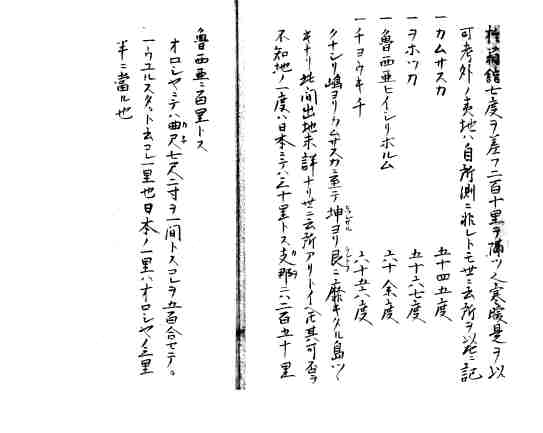 箱館七度ヲ差フ二百十里ヲ隔ツ人寒暖是ヲ以
可考外ノ夷地ハ自所測ニ非レトモ世ニ云所ヲ以茲ニ記
一カムサスカ 五十四五度
一ヲホツカ 五十六七度
一魯西亜ヒイシリホルム 六十余度
一チヨウキチ 六十五六度
クナシリ嶋ヨリカムサスカニ至テ坤ヨリ艮ニ靡キタル島ツヾ
キナリ此間出地未詳ナリ世ニ云所アリトイヘ𪜈其可否ヲ
不知地ノ一度ハ日本ニテハ三十里トス支那ニハ二百五十里
魯西亜ニ百里トス
オロシヤニテハ曲尺七尺二寸ヲ一間トスコレヲ五百合セテ
一ウエルスタット云コレ一里也日本ノ一里ハオロシヤノ三里
半ニ當ル也